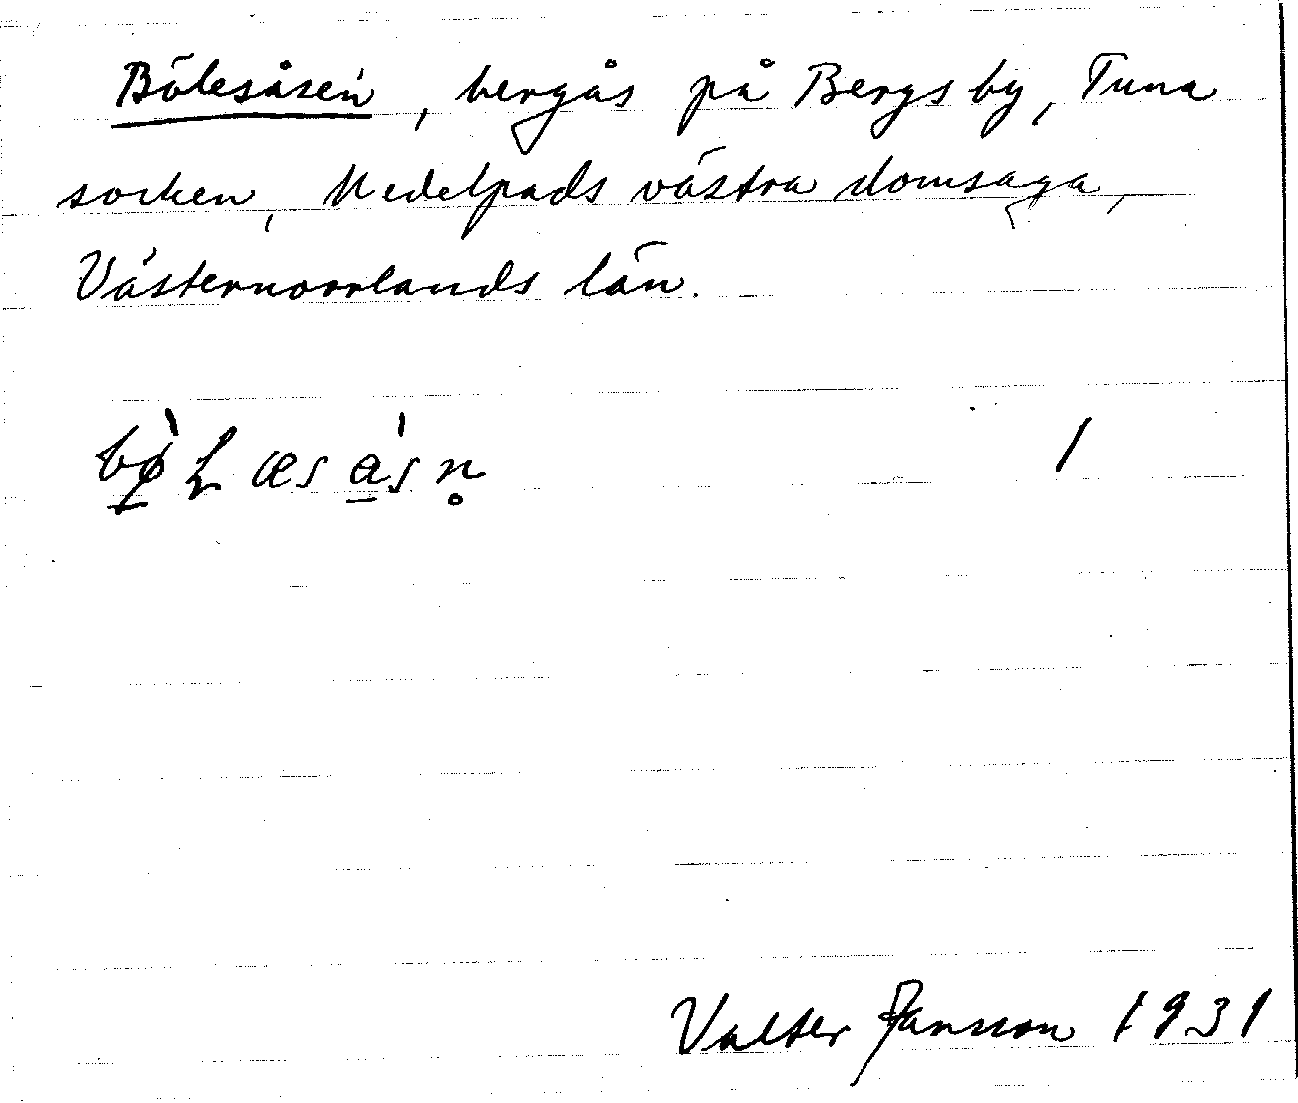 Bölesåsen, bergås på Bergsby, Tuna
socken, Medelpads västra domsaga,
Västernorrlands län.
bø̀Ɫæsa̠'sn̥ 1
Valter Jansson 1931